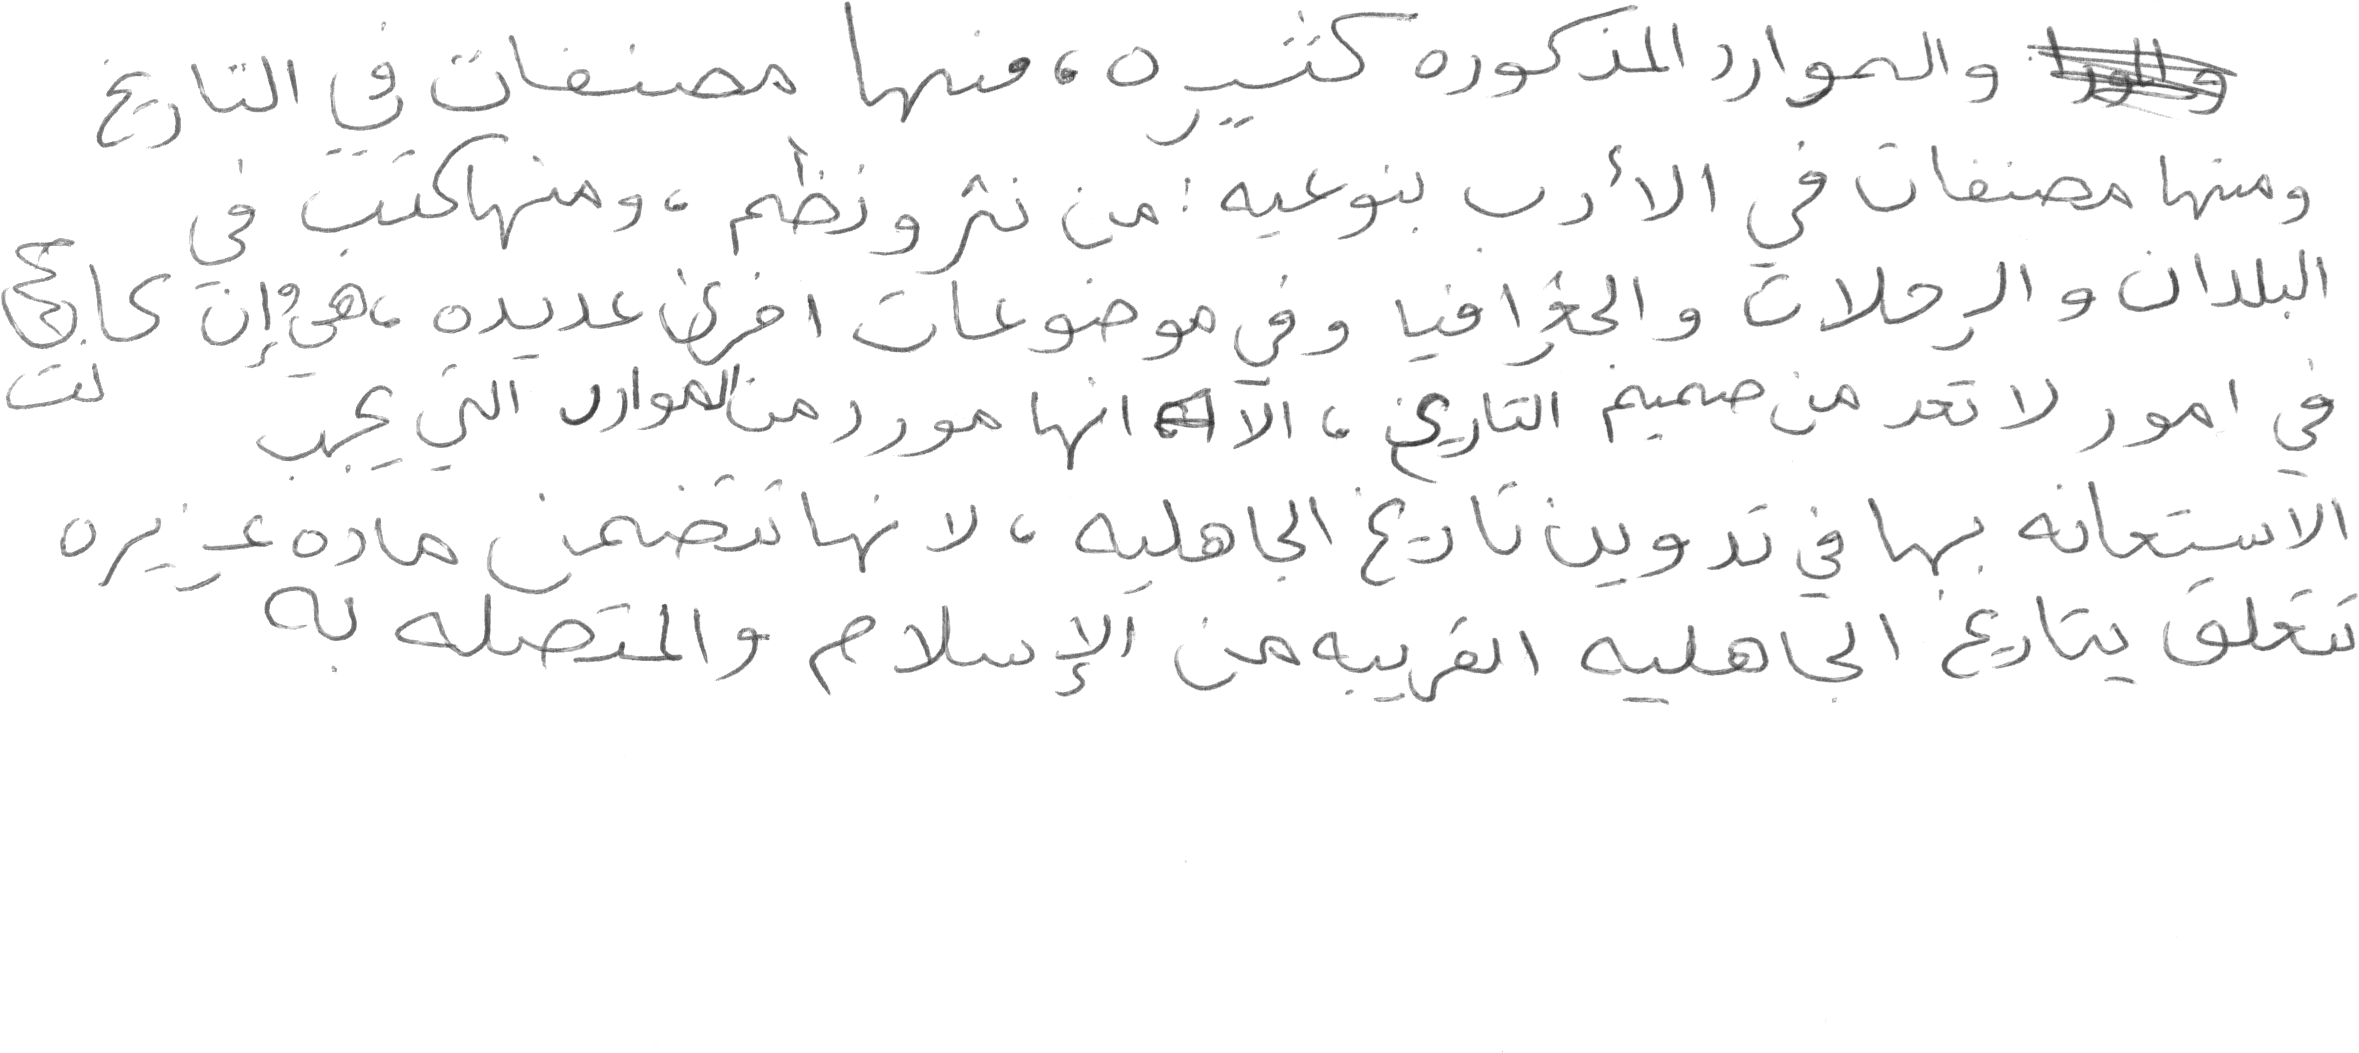 والموارد المذكوره كثيره، منها مصنفات في التاريخ
ومنها مصنفات في الأدب بنوعيه: من نثر ونظم، ومنها كتب في
البلدان والرحلات والجغرافيا وفي موضوعات اخرى عديده، هي وإن كا
نت
في امور لا تعد من صميم التاريخ، الا انها مورد من الموارد التي يجب
الاستعانه بها في تدوين تاريخ الجاهليه، لانها تتضمن ماده غزيره
تتعلق بتاريخ الجاهليه القريبه من الإسلام والمتصله به